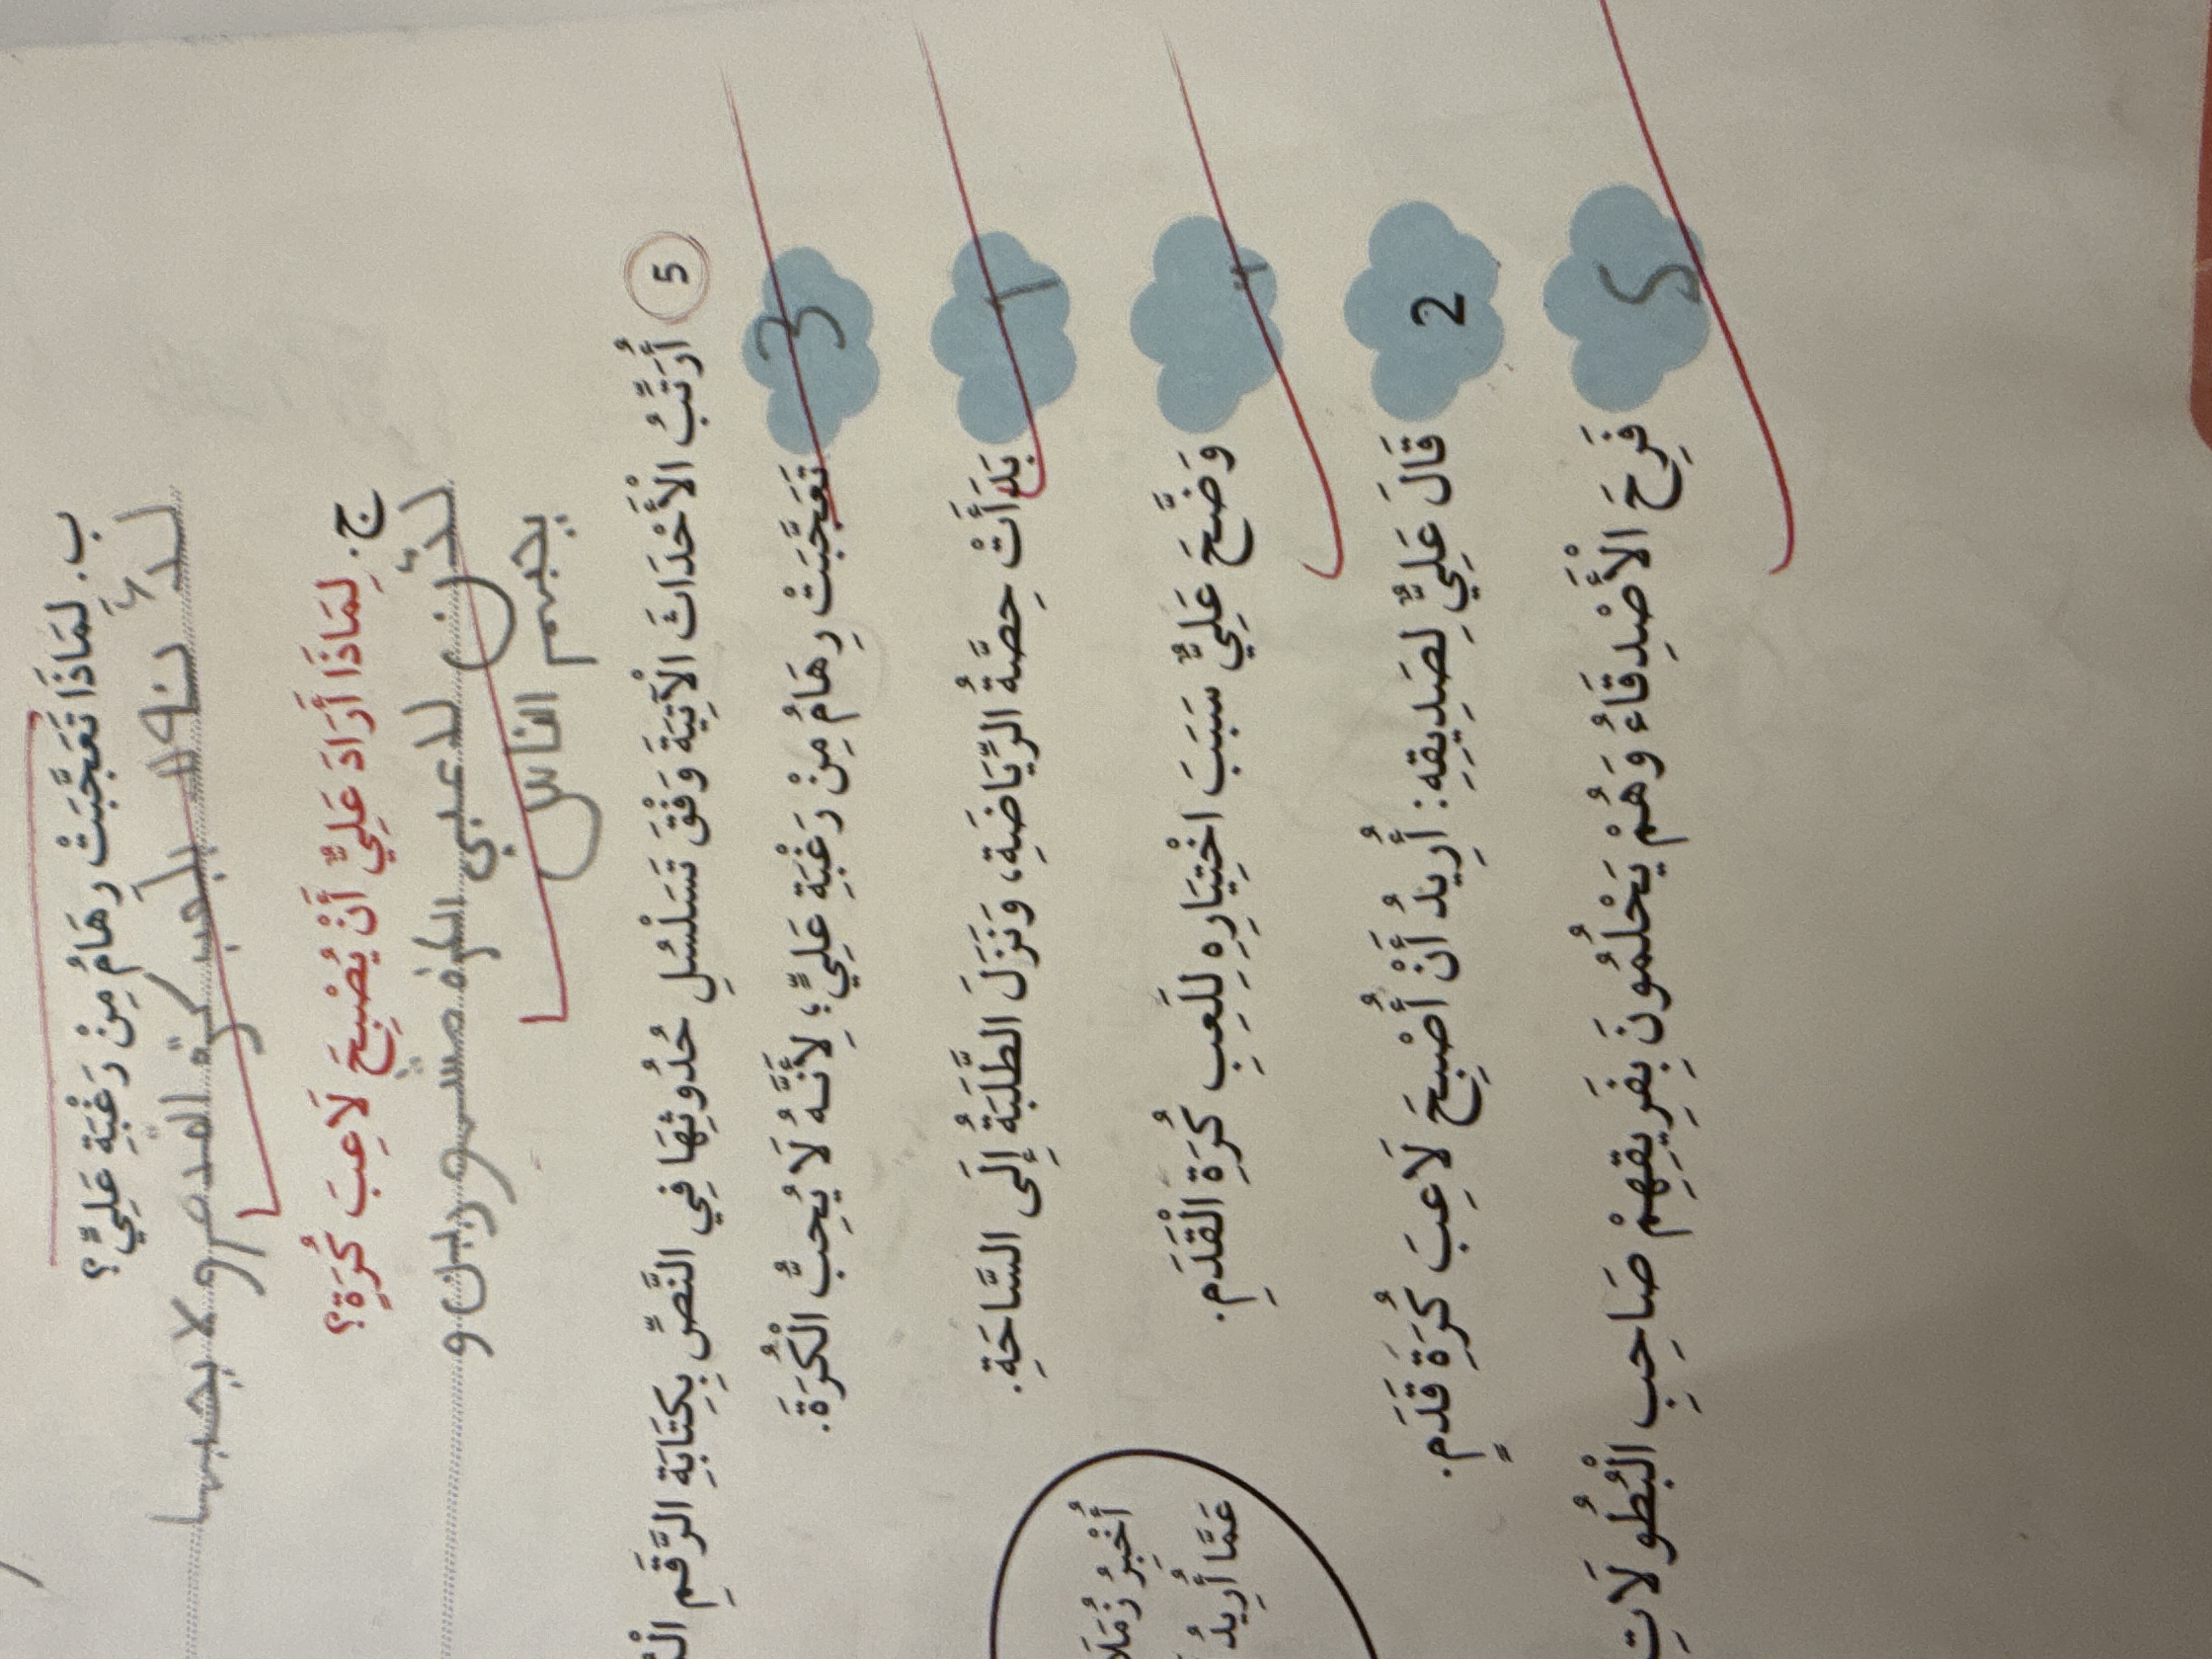 ب. لِمَاذَا تَعَجَّبَتْ رِهَامُ مِنْ رَغْبَةِ عَلِيٍّ؟
لأنه لا يلعب كرة القدم و لا يحبها
ج. لِمَاذَا أَرَادَ عَلِيٌّ أَنْ يُصْبِحَ لَاعِبَ كُرَةٍ؟
لأن لاعبي الكرة مشهورين و
يحبهم الناس
5 أُرَتِّبُ الْأَحْدَاثَ الْآتِيَةَ وَفْقَ تَسَلْسُلِ حُدُوثِهَا فِي النَّصِّ بِكِتَابَةِ الرَّقَمِ
3 تَعَجَّبَتْ رِهَامُ مِنْ رَغْبَةِ عَلِيٍّ؛ لِأَنَّهُ لَا يُحِبُّ الْكُرَةَ.
1 بَدَأَتْ حِصَّةُ الرِّيَاضَةِ، وَنَزَلَ الطَّلَبَةُ إِلَى السَّاحَةِ.
4 وَضَّحَ عَلِيٌّ سَبَبَ اخْتِيَارِهِ لِلَعِبِ كُرَةِ الْقَدَمِ.
2 قَالَ عَلِيٌّ لِصَدِيقِهِ: أُرِيدُ أَنْ أُصْبِحَ لَاعِبَ كُرَةِ قَدَمٍ.
5 فَرِحَ الْأَصْدِقَاءُ وَهُمْ يَحْلُمُونَ بِفَرِيقِهِمْ صَاحِبِ الْبُطُولَاتِ
أُخْبِرُ
عَمَّا أُرِيدُ